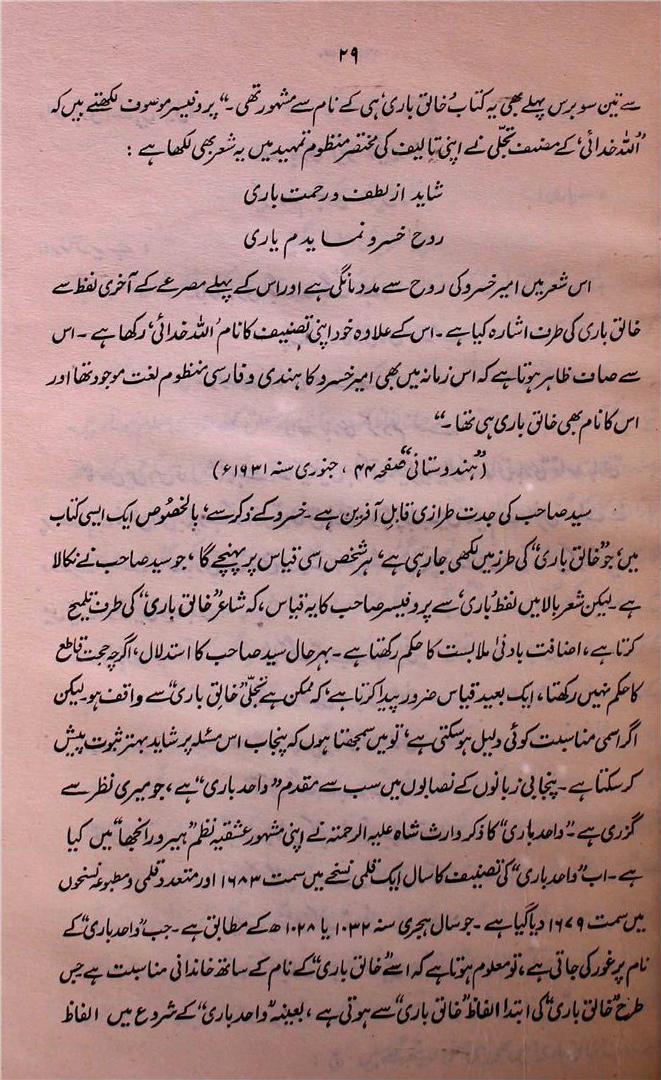 ۲۹
سے تین سو برس پہلے بھی یہ کتاب ’خالق باری‘ ہی کے نام سے مشہور تھی۔“ پروفیسر موصوف لکھتے ہیں کہ
’اللہ خدائی‘ کے مصنف تجلّی نے اپنی تالیف کی مختصر منظوم تمہید میں یہ شعر بھی لکھا ہے :
شاید از لطف و رحمت باری
روح خسرو نماید م یاری
اس شعر میں امیر خسرو کی روح سے مدد مانگی ہے اور اس کے پہلے مصرعے کے آخری لفظ سے
خالق باری کی طرف اشارہ کیا ہے۔ اس کے علاوہ خود اپنی تصنیف کا نام ’اللہ خدائی‘ رکھا ہے۔ اس
سے صاف ظاہر ہوتا ہے کہ اس زمانہ میں بھی امیر خسرو کا ہندی و فارسی منظوم لغت موجود تھا اور
اس کا نام بھی خالق باری ہی تھا۔“
(”ہندوستانی“ صفحہ ۴۴ ، جنوری سنہ ۱۹۳۱ء)
سید صاحب کی جدت طرازی قابلِ آفرین ہے۔ خسرو کے ذکر سے، بالخصوص ایک ایسی کتاب
میں، جو ”خالق باری“ کی طرز میں لکھی جا رہی ہے، ہر شخص اسی قیاس پر پہنچے گا، جو سید صاحب نے نکالا
ہے۔ لیکن شعر بالا میں لفظ ’باری‘ سے پروفیسر صاحب کا یہ قیاس، کہ شاعر ”خالق باری“ کی طرف تلمیح
کرتا ہے، اضافت بادنیٰ ملابست کا حکم رکھتا ہے۔ بہرحال سید صاحب کا استدلال، اگرچہ حجت قاطع
کا حکم نہیں رکھتا، ایک بعید قیاس ضرور پیدا کرتا ہے، کہ ممکن ہے تجلّی ”خالق باری“ سے واقف ہو۔ لیکن
اگر اسمی مناسبت کوئی دلیل ہو سکتی ہے، تو میں سمجھتا ہوں کہ پنجاب اس مسئلہ پر شاید بہتر ثبوت پیش
کر سکتا ہے۔ پنجابی زبانوں کے نصابوں میں سب سے مقدم ”واحد باری“ ہے، جو میری نظر سے
گزری ہے۔ ”واحد باری“ کا ذکر وارث شاہ علیہ الرحمتہ نے اپنی مشہور عشقیہ نظم ”ہیر و رانجھا“ میں کیا
ہے۔ اب ”واحد باری“ کی تصنیف کا سال ایک قلمی نسخے میں سمت ۱۶۸۳ اور متعدد قلمی و مطبوعہ نسخوں
میں سمت ۱۶۷۹ دیا گیا ہے۔ جو سال ہجری سنہ ۱۰۳۲ یا ۱۰۲۸ھ کے مطابق ہے۔ جب ”واحد باری“ کے
نام پر غور کی جاتی ہے، تو معلوم ہوتا ہے کہ اسے ”خالق باری“ کے نام کے ساتھ خاندانی مناسبت ہے جس
طرح ”خالق باری“ کی ابتدا الفاظ ”خالق باری“ سے ہوتی ہے، بعینہٖ ”واحد باری“ کے شروع میں الفاظ